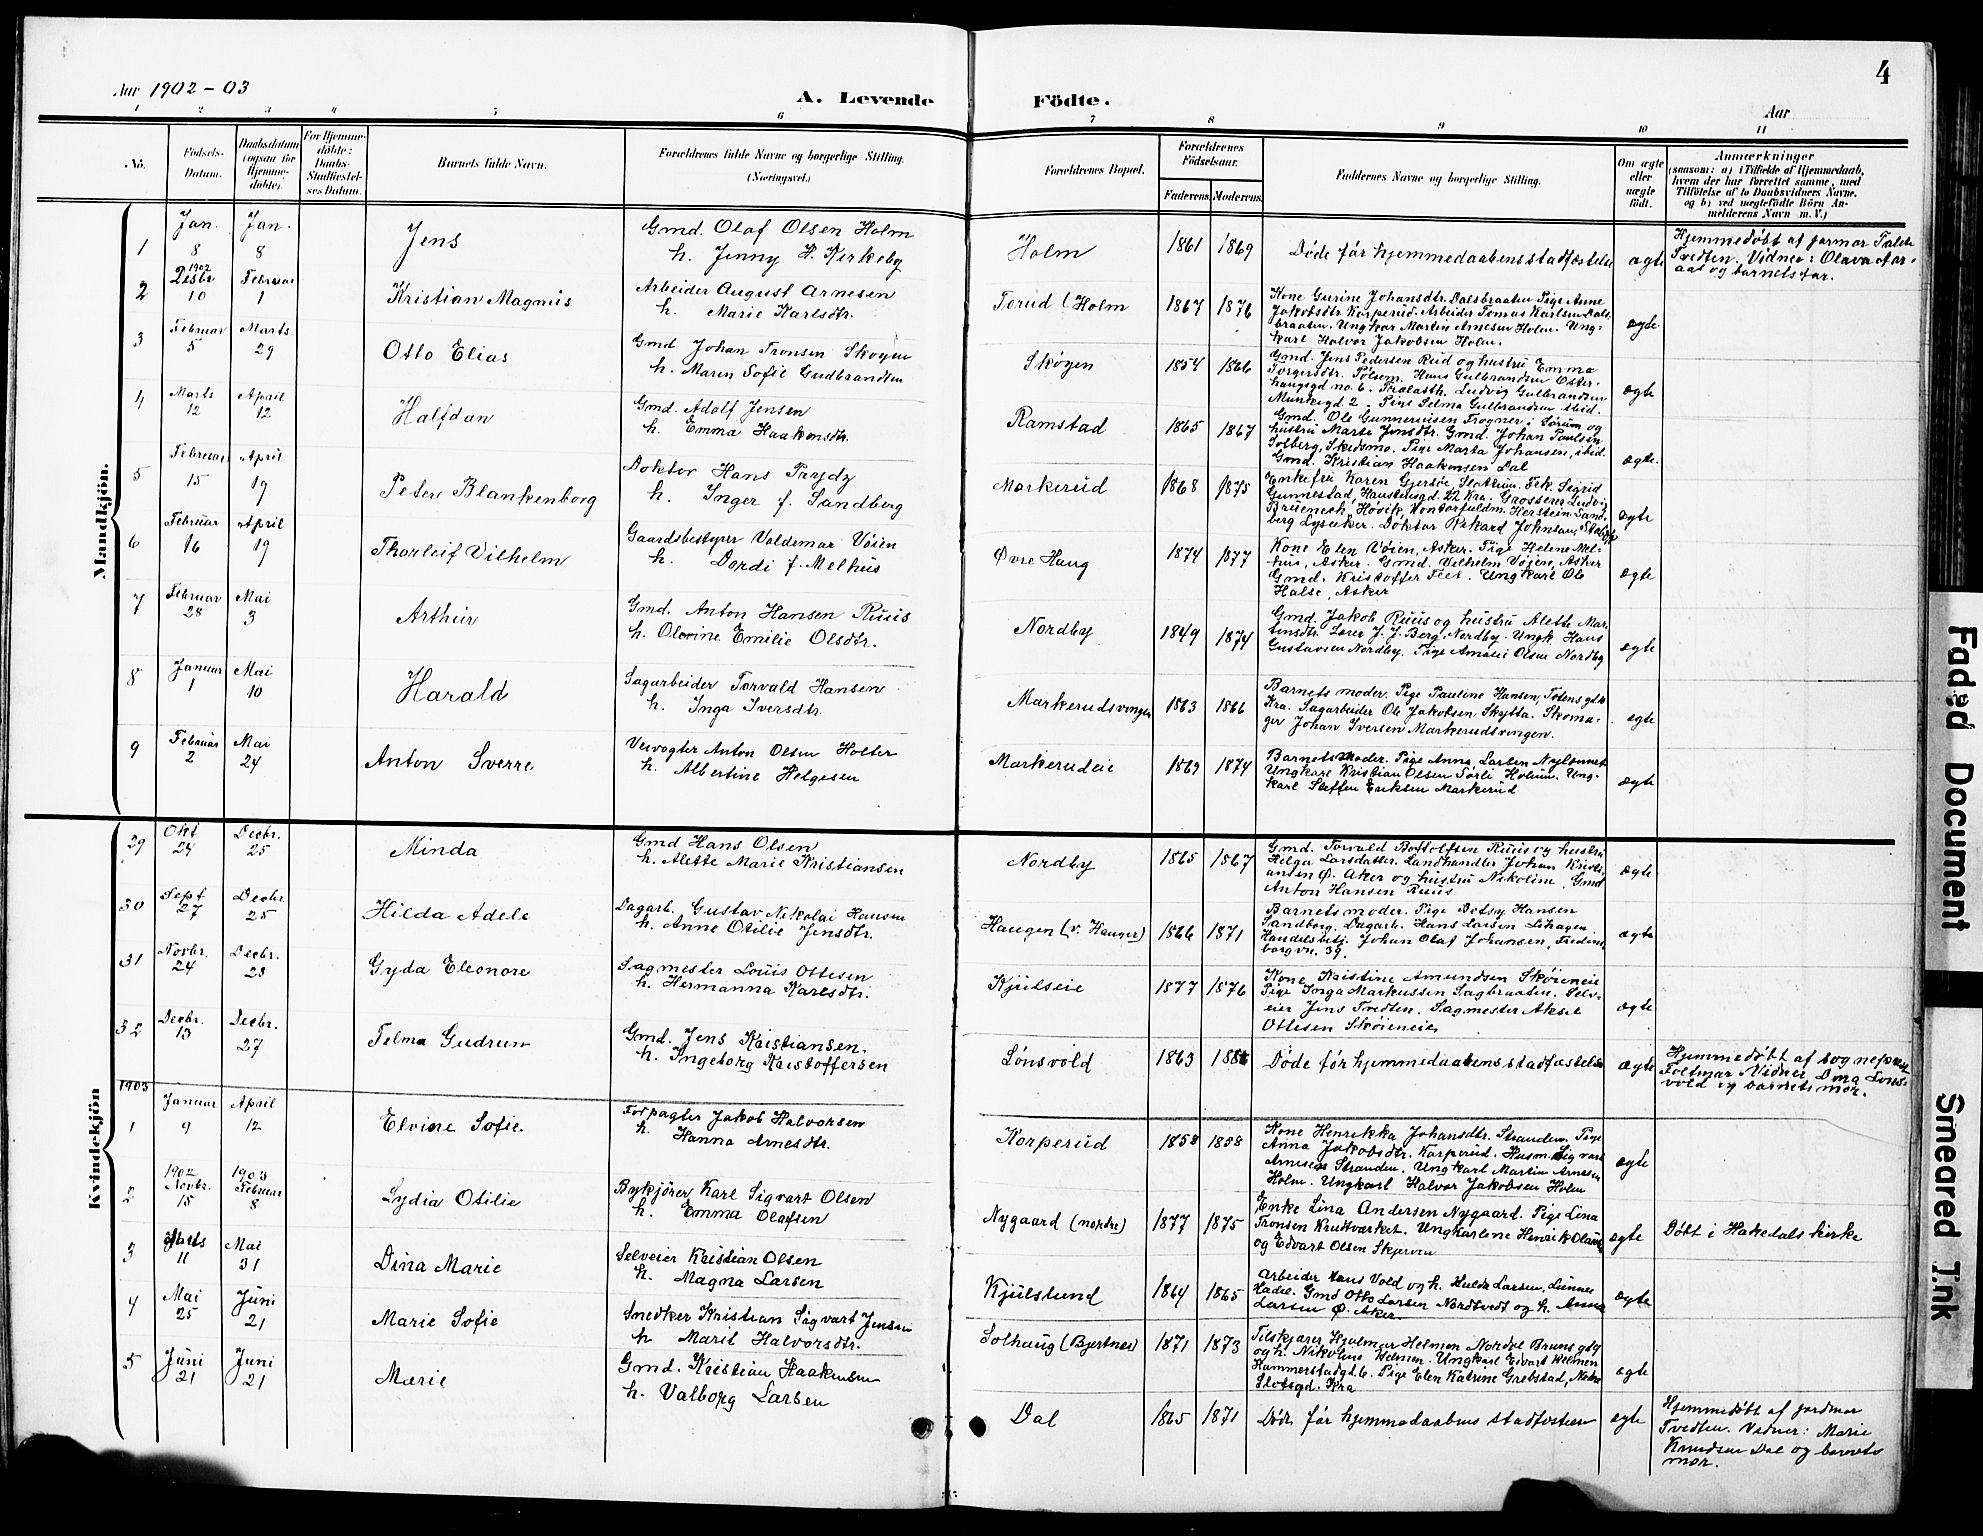 4
Aar 1902 - 03
A. Levende Födte.
Aar
1 2 3 4 5 6 7 8 9 10 11
No.
Födsels-Datum.
Daabsdatum (ogsaa for Hjemmedöbte).
For Hjemmedöbte: Daabs-Stadfæstelses Datum.
Barnets fulde Navn.
Forældrenes fulde Navne og borgerlige Stilling. (Næringsvei.)
Forældrenes Bopæl.
Forældrenes Födselsaar.
Faderens. Moderens.
Faddernes Navne og borgerlige Stilling.
Om ægte eller uægte födt.
Anmærkninger
(saasom: a) i Tilfælde af Hjemmedaab, hvem der har forrettet samme, med Tilföielse af to Daabsvidners Navne. og b) ved uegtefödte Börn Anmelderens Navn m. V.)
Mandkjön.
1 Jan. 8 Jan. 8 Jens
Gmd. Olaf Olsen Holm
h. Jenny H. Kirkeby
Holm 1861 1869 Døde før hjemmedaabens stadfæstelse ægte
Hjemmedøbt af jormor
Tvedten. Vidner: Olava
og barnets far.
2 1902 Desbr 10 Februar 1 Kristian Magnus
Arbeider August Arnesen
h. Marie Karlsdtr.
Torud (Holm 1867 1876
Kone Gurine Johansdtr. Dalsbraaten Pige Anne
Jakobsdtr Korperud. Arbeider Tomas Karlsen Dals-
braaten. Ungkar Martin Arnesen Holm. Ung-
karl Halvor Jakobsen Holm.
ægte
3 Februar 5 Marts 29 Otto Elias
Gmd Johan Tronsen Skogen
h. Maren Sofie Gudbrandsen
Skøgen 1854 1866
Gmd. Jens Pedersen Rud og hustru Emma
Torgersdtr. Pølsen. Hans Gulbrandsen Øster-
haugsgd no. 6. Ludvig Gulbrandsen
Munkegd 2. Pige Selma Gulbrandsen ibid.
ægte
4 Marts 12 April 12 Halfdan
Gmd. Adolf Jensen
h. Emma Haakensdtr.
Ramstad 1865 1867
Gmd. Ole Gunnerinsen Frogner i Sørum og
hustru Marte Jensdtr. Gmd. Johan Paulsen
Solberg, Skedsmo. Pige Marta Johansen, ibid.
Gmd. Kristian Haakensen Dal
ægte.
5 Februar 15 April 19 Peter Blankenborg
Doktor Hans Prydz
h. Inger f. Sandberg
Markerud 1868 1875
Enkefru Karen Gjersøe, Slattum. Frk. Sigrid
Gunnestad, 22 Kra. Grosserer Ludvig
Høvik. Kontorfuldm. Herstein Sand-
berg Lysaker. Doktor Rikard Johnsen,
ægte
6 Februar 16 April 19 Thorleif Vilhelm
Gaardsbestyrer Valdemar Vøien
h. Dordi f. Melhus
Øvre Haug 1874 1877
Kone Elen Vøien, Asker. Pige Helene Mel-
hus, Asker. Gmd. Vilhelm Vøien, Asker
Gmd. Kristoffer Feet. Ungkarl Ole
Halse, Asker
ægte
7 Februar 28 Mai 3 Arthur
Gmd. Anton Hansen Ruus
h. Olevine Emilie Olsdtr.
Nordby 1849 1874
Gmd. Jakob Ruus og hustru Alette Mar-
tinsdtr. Lærer J. J. Berg, Nordby. Ungk Hans
Gustavsen Nordby. Pige Amalie Olsen Nordby
ægte
8 Januar 1 Mai 10 Harald
Sagarbeider Torvald Hansen
h. Inga Iversdtr.
Markerudsvingen 1863 1866
Barnets moder. Pige Pauline Hansen, Totensgd
Kra. Sagarbeider Ole Jakobsen Skytta. Skoma-
ger Johan Iversen Markerudsvingen.
egte
9 Februar 2 Mai 24 Anton Sverre
Veivogter Anton Olsen Holter
h. Albertine Helgesen
Markerudeie 1869 1874
Barnets Moder. Pige Anna Larsen
Ungkarl Kristian Olsen Sørli Holum. Ung-
karl Steffen Eriksen Markerud
ægte
Kvindekjön
29 Okt 24 Decbr. 25 Minda
Gmd Hans Olsen
h. Alette Marie Kristiansen
Nordby 1865 1867
Gmd. Torvald Bottolfsen Ruus og hustru
Helga Larsdatter. Landhandler Johan Kristi-
ansen Ø. Aker og hustru Nikoline. Gmd
Anton Hansen Ruus
ægte
30 Sept 27 Decbr. 25 Hilda Adele
Dagarb. Gustav Nikolai Hansen
h. Anne Otilie Jensdtr.
Haugen (v. Hauger) 1866 1871
Barnets moder. Pige Betsy Hansen
Sandberg. Dagarb. Hans Larsen
Handelsbetj. Johan Olaf Johansen, Fredens-
borgvn. 39.
ægte
31 Novbr. 24 Decbr. 23 Gyda Eleonore
Sagmester Louis Ottesen
h. Hermanna Karlsdtr.
Kjulseie 1877 1876
Kone Kristine Amundsen Skøieneie
Pige Inga Markussen Sagbraaten. Selv-
eier Jens Tvedten. Sagmester Aksel
Ottesen Skøieneie
ægte
32 Decbr. 13 Decbr. 27 Telma Gudrun
Gmd. Jens Kristiansen.
h. Ingeborg Kristoffersen
Lønsvold 1863
Døde før hjemmedaabens stadfæstelse ægte
Hjemmedøbt af sogneprest
Foltmar Vidner Dina Løns-
vold og barnets mor.
1903
1 Januar 9 April 12 Elvine Sofie
Forpagter Jakob Halvorsen
h. Hanna Arnesdtr.
Korperud 1858 1858
Kone Henrikka Johansdtr. Stranden. Pige
Anna Jakobsdtr. Korperud. Husm. Sigvart
Arnesen Stranden. Ungkarl Martin Arnesen
Holm. Ungkarl Halvor Jakobsen Holm
ægte
2 1902 Novbr. 15 1903 Februar 8 Lydia Otilie
Bykjører Karl Sigvart Olsen
h. Emma Olafsen
Nygaard (nordre) 1877 1875
Enke Lina Andersen Nygaard. Pige Lina
Tronsen Krudtværket. Ungkarlene Henrik
og Edvart Olsen Skjerven
ægte
Døbt i Hakedals kirke
3 Marts 11 Mai 31 Dina Marie
Selveier Kristian Olsen
h. Magna Larsen
Kjulslund 1864 1865
Arbeider Hans Vold og h. Hulda Larsen, Lunner
Hadel. Gmd Otto Larsen Nordtvedt og h. Anna
Larsen Ø. Aker.
ægte
4 Mai 25 Juni 21 Marie Sofie
Snedker Kristian Sigvart Jensen
h Marit Halvorsdtr.
Solhaug (Bjertnes) 1871 1873
Tilskjærer Hjalmar Helmen Nordre Brunsgd
og h. Nikoline Helmen. Ungkarl Edvart Helmen
Hammerstadgt. 6. Pige Elen Katrine Grebstad, Nedre
Slotsgd. Kra
ægte
5 Juni 21 Juni 21 Marie
Gmd. Kristian Haakensen
h. Valborg Larsen
Dal 1865 1871 Døde før hjemmedaabens stadfæstelse ægte
Hjemmedøbt af jordmor
Tvedten. Vidner: Marie
Knudsen Dal og barnets
mor.
Faded Document
Smeared Ink